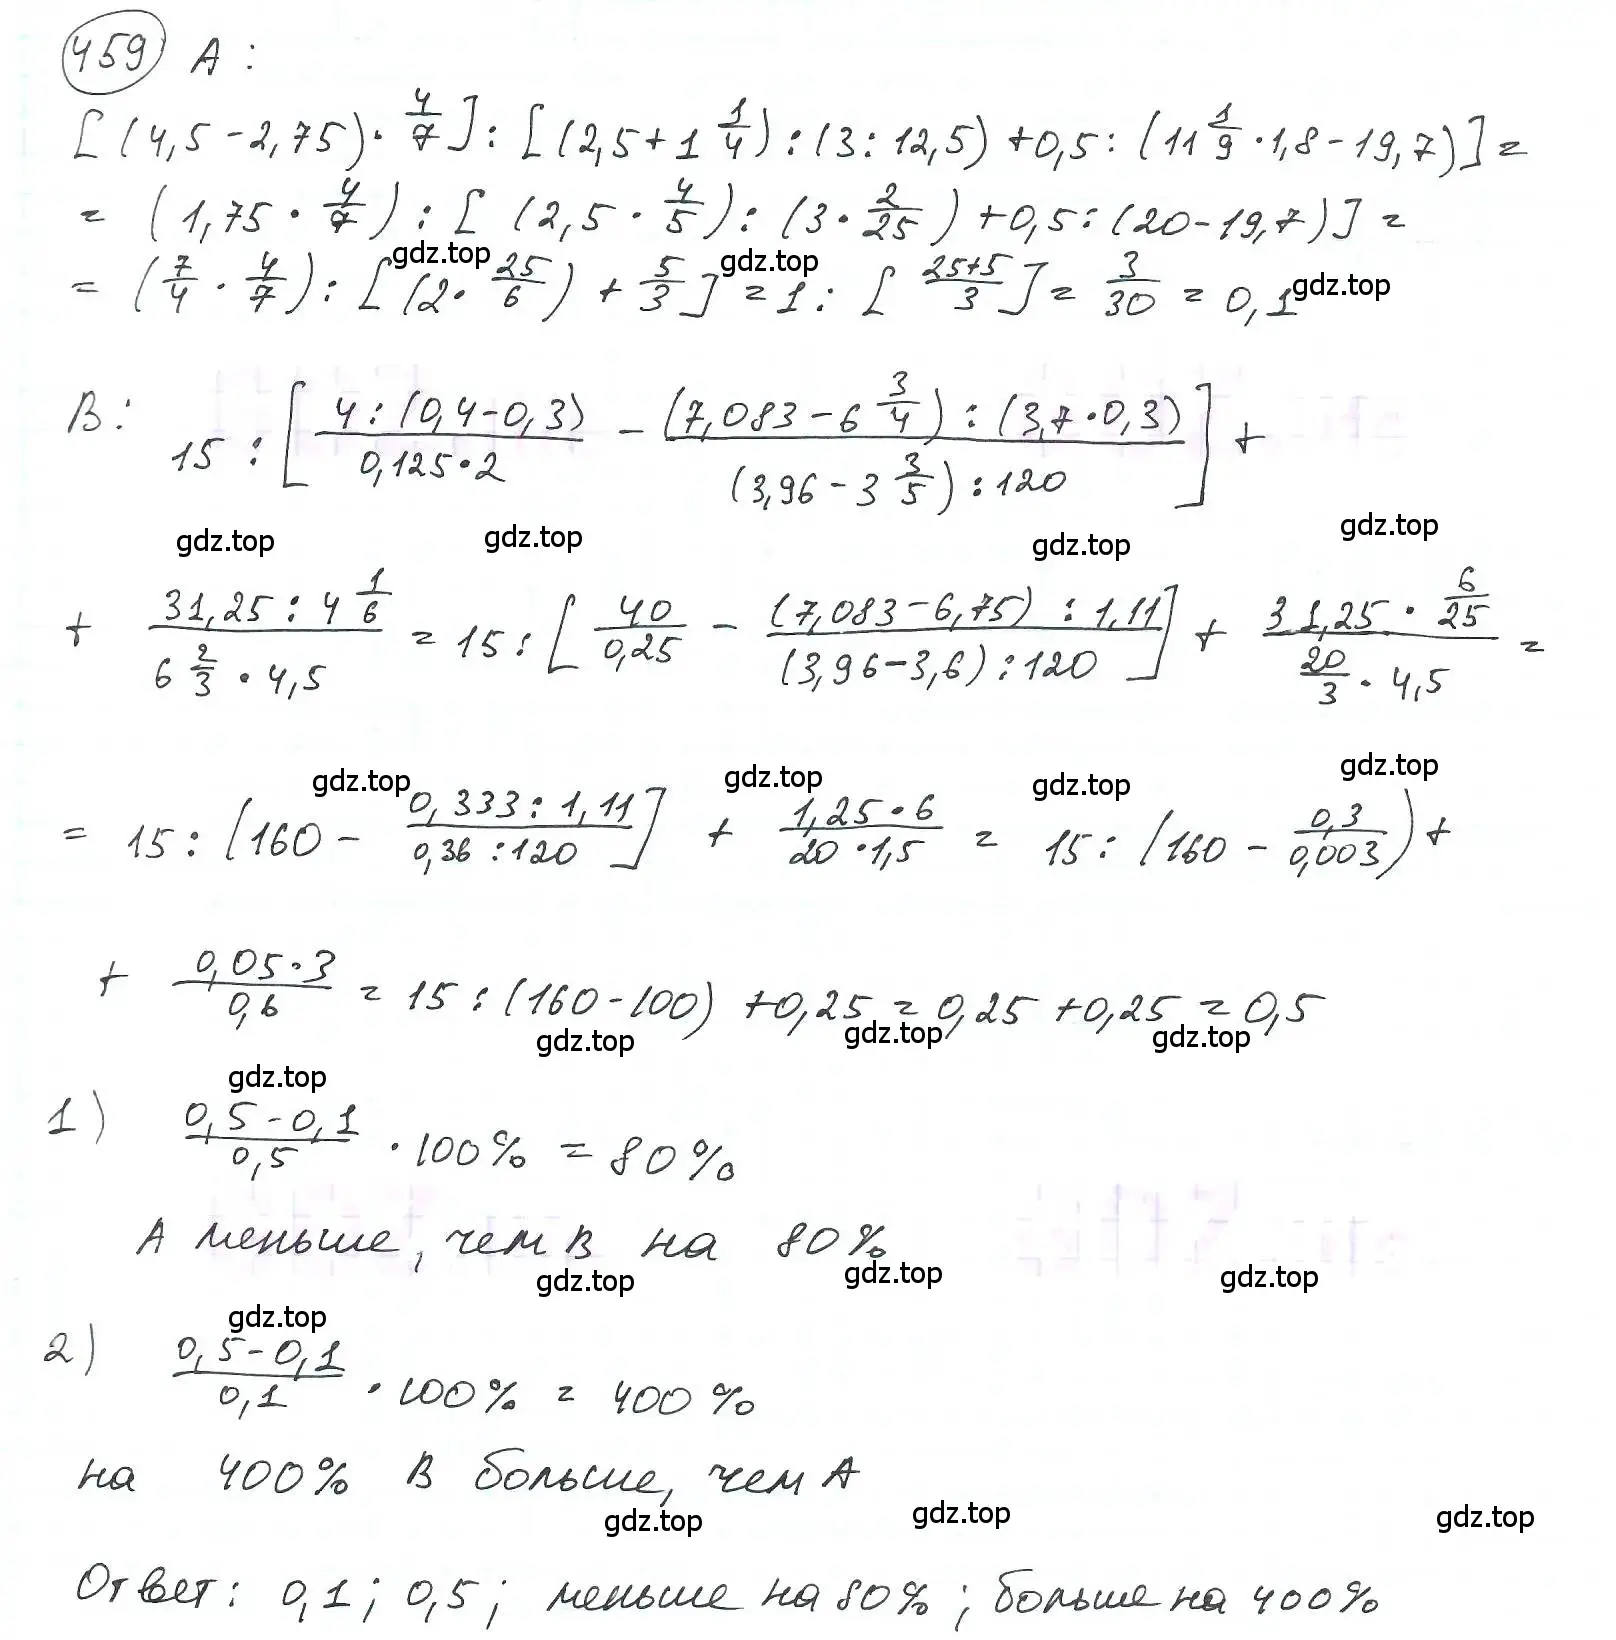 459 А:
[(4,5-2,75)·4/7]:[(2,5+1 1/4):(3:12,5)+0,5:(11 1/9·1,8-19,7)]=
=(1,75·4/7):[(2,5·4/5):(3·2/25)+0,5:(20-19,7)]=
=(7/4·4/7):[(2·25/6)+5/3]=1:[(25+5)/3]=3/30=0,1
gdz.top gdz.top gdz.top
В: 15:[(4:(0,4-0,3))/(0,125·2) - ((7,083-6 3/4):(3,7·0,3))/((3,96-3 3/5):120)]+
gdz.top gdz.top gdz.top gdz.top
+ (31,25:4 1/6)/(6 2/3·4,5) = 15:[40/0,25 - ((7,083-6,75):1,11)/((3,96-3,6):120)] + (31,25·6/25)/(20/3·4,5) =
gdz.top gdz.top gdz.top gdz.top
= 15:[160 - (0,333:1,11)/(0,36:120)] + (1,25·6)/(20·1,5) = 15:(160 - 0,3/0,003)+
+ (0,05·3)/0,6 = 15:(160-100)+0,25=0,25+0,25=0,5
gdz.top gdz.top gdz.top
gdz.top
1) (0,5-0,1)/0,5 · 100% = 80%
А меньше, чем В на 80%
gdz.top gdz.top gdz.top
gdz.top
2) (0,5-0,1)/0,1 · 100% = 400%
на 400% В больше, чем А
gdz.top gdz.top gdz.top
Ответ: 0,1; 0,5; меньше на 80%; больше на 400%